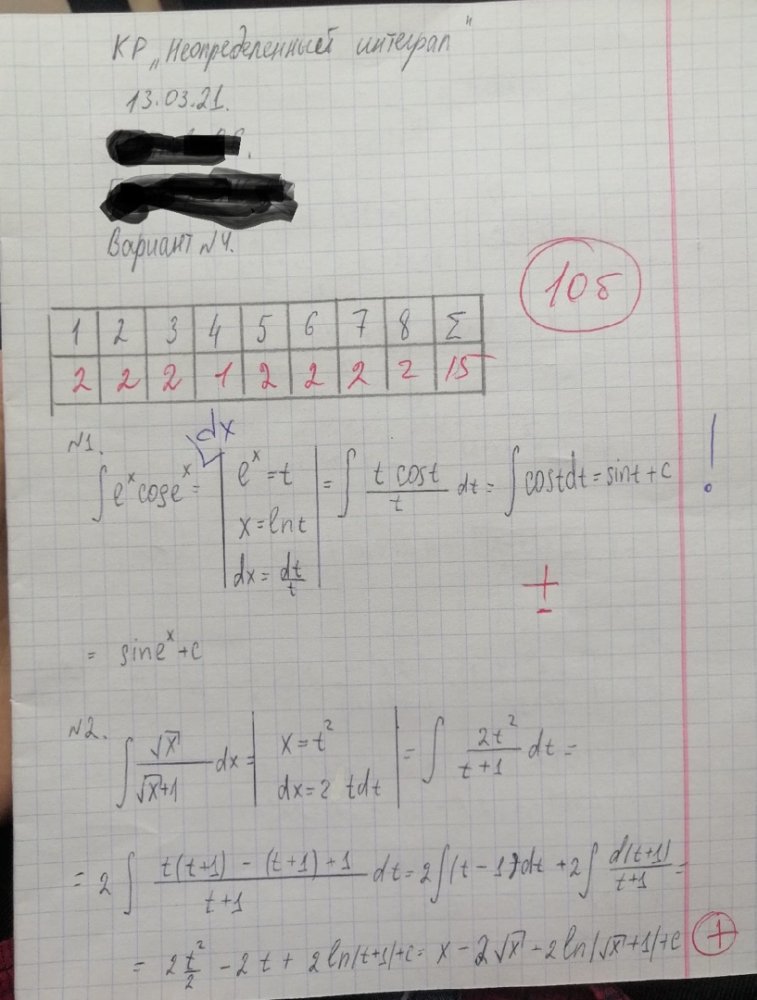 КР „Неопределенный интеграл"
13.03.21.
Вариант №4.
10б
1 2 3 4 5 6 7 8 Σ
2 2 2 1 2 2 2 2 15
№1.
dx
∫ e^x cos e^x = | e^x = t x = ln t dx = dt/t | = ∫ (t cos t)/t dt = ∫ cos t dt = sin t + c !
±
= sin e^x + c
№2.
∫ √x/(√x+1) dx = | x = t^2 dx = 2 tdt | = ∫ 2t^2/(t+1) dt =
= 2 ∫ (t(t+1) - (t+1) + 1)/(t+1) dt = 2∫(t - 1)dt + 2∫ d(t+1)/(t+1) =
= 2 t^2/2 - 2t + 2 ln|t+1| + c = x - 2√x - 2 ln|√x+1| + c +